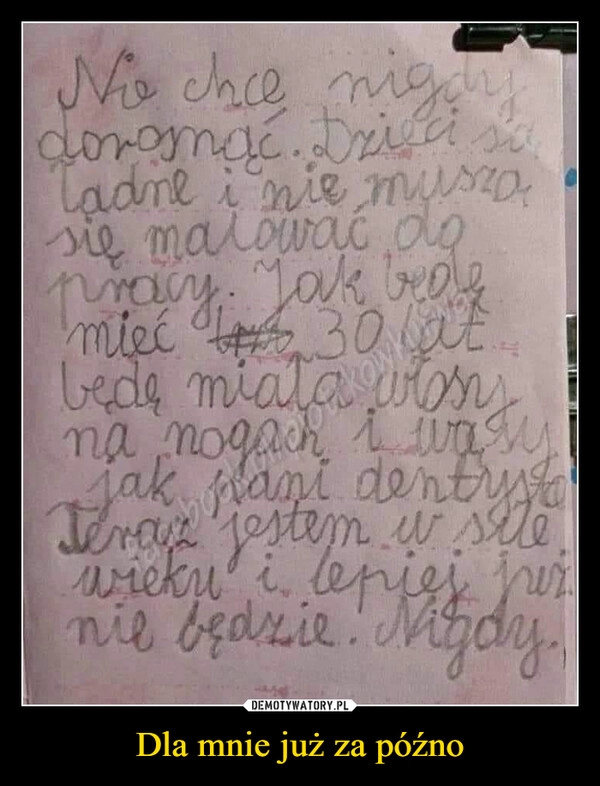 Nie chcę nigdy
dorosnąć. Dzieci są
ładne i nie muszą
się malować do
pracy. Jak będę
mieć 30 lat
będę miała włosy
na nogach i wąsy
jak pani dentysta
Teraz jestem w sile
wieku i lepiej już
nie będzie. Nigdy.
DEMOTYWATORY.PL
Dla mnie już za późno